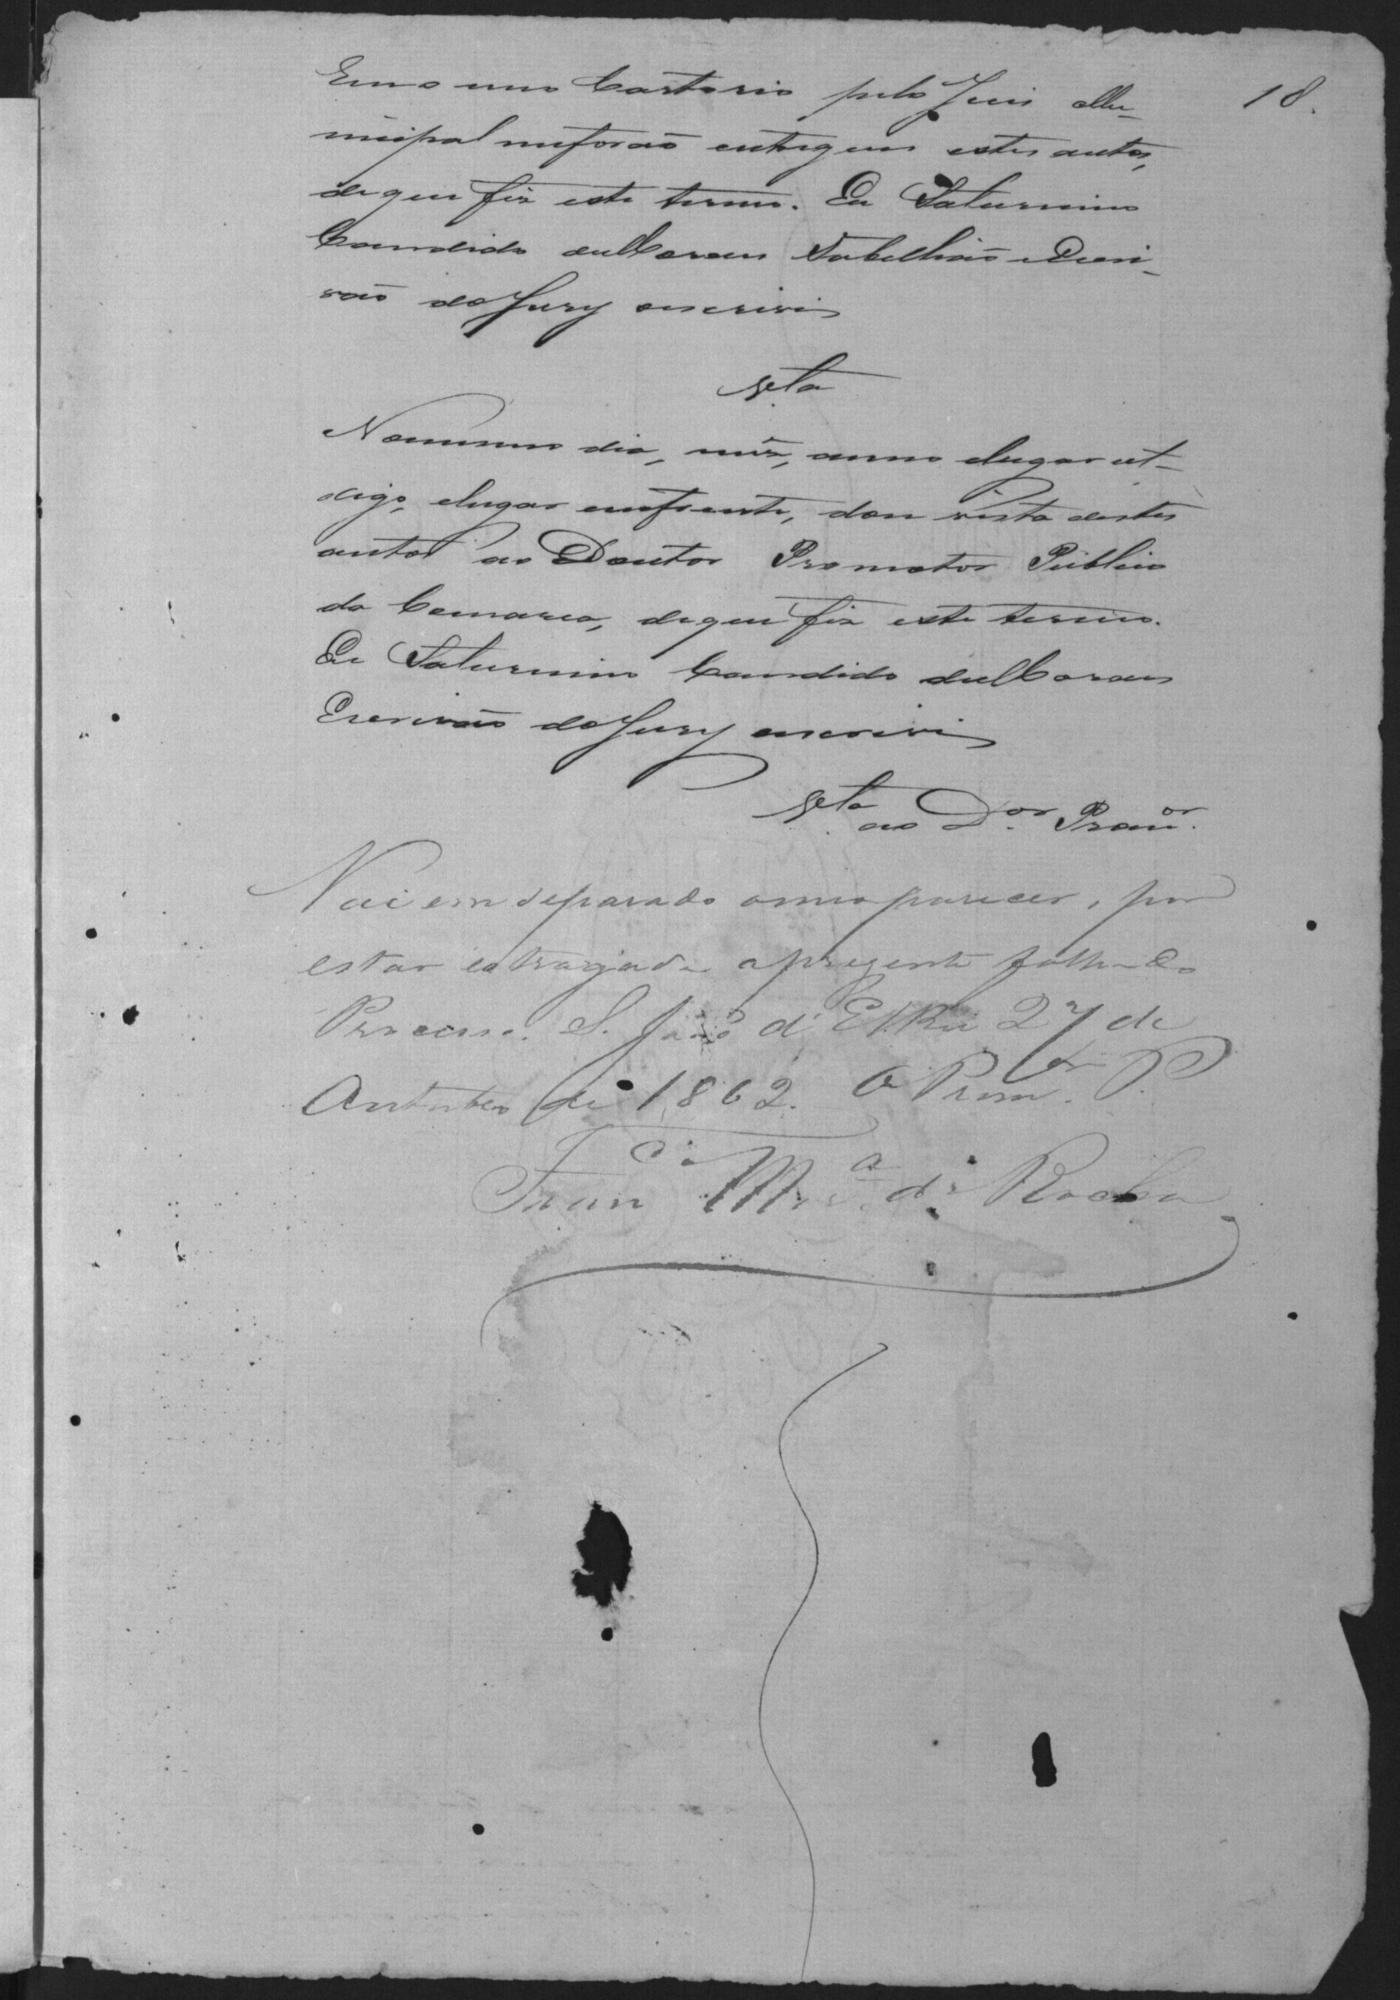 18.
Em o meu Cartorio pelo Juis Mu-
nicipal me forão entregues estes autos,
de que fiz este termo. Eu Saturnino
Candido de Moraes Tabellião e Escri-
vão do Jury escrivi
Vta
No mesmo dia, mez, anno e lugar ut-
digo, e lugar em frente, dou vista destes
autos ao Doutor Promotor Publico
da Comarca, de que fiz este termo.
Eu Saturnino Candido de Moraes
Escrivão do Jury escrivi
Vta ao Dor. Promor.
Vai em separado o meo parecer, por
estar estragada a prezente folha do
Processo. S. João d'El Rei 27 de
Outubro de 1862. O Promor. P.
Franco. Mra. da Rocha